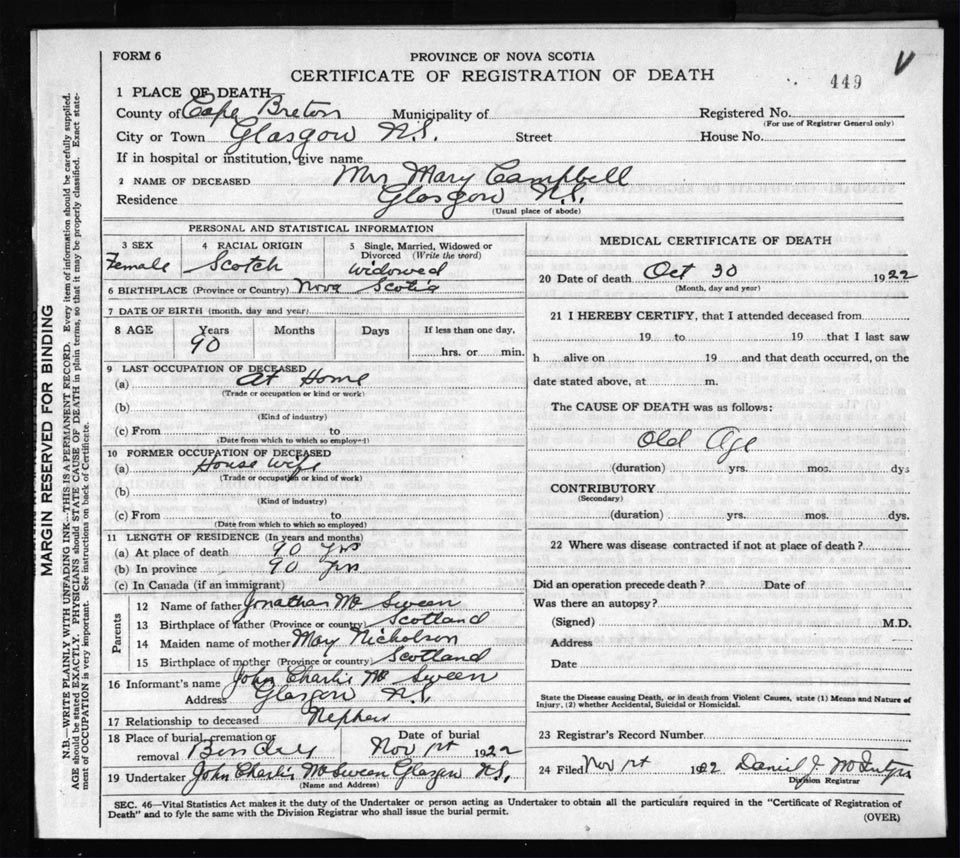 FORM 6
PROVINCE OF NOVA SCOTIA
CERTIFICATE OF REGISTRATION OF DEATH
449
V
1 PLACE OF DEATH
County of Cape Breton Municipality of Registered No.
(For use of Registrar General only)
City or Town Glasgow N.S. Street House No.
If in hospital or institution, give name
2 NAME OF DECEASED Mrs Mary Campbell
Residence Glasgow N.S.
(Usual place of abode)
PERSONAL AND STATISTICAL INFORMATION
3 SEX 4 RACIAL ORIGIN 5 Single, Married, Widowed or Divorced (Write the word)
Female Scotch Widowed
6 BIRTHPLACE (Province or Country) Nova Scotia
7 DATE OF BIRTH (month, day and year)
8 AGE Years Months Days If less than one day,
90 hrs. or min.
9 LAST OCCUPATION OF DECEASED
(a) At Home
(Trade or occupation or kind or work)
(b)
(Kind of industry)
(c) From to
(Date from which to which so employed)
10 FORMER OCCUPATION OF DECEASED
(a) House wife
(Trade or occupation or kind of work)
(b)
(Kind of industry)
(c) From to
(Date from which to which so employed)
11 LENGTH OF RESIDENCE (In years and months)
(a) At place of death 90 yrs
(b) In province 90 yrs
(c) In Canada (if an immigrant)
Parents
12 Name of father Jonathan Mc Sween
13 Birthplace of father (Province or country) Scotland
14 Maiden name of mother Mary Nicholson
15 Birthplace of mother (Province or country) Scotland
16 Informant's name John Charlie Mc Sween
Address Glasgow N.S.
17 Relationship to deceased Nephew
18 Place of burial, cremation or removal Date of burial
Nov 1st 1922
19 Undertaker John Charlie McSween Glasgow N.S.
(Name and Address)
MEDICAL CERTIFICATE OF DEATH
20 Date of death Oct 30 1922
(Month, day and year)
21 I HEREBY CERTIFY, that I attended deceased from
19 to 19 that I last saw
h alive on 19 and that death occurred, on the
date stated above, at m.
The CAUSE OF DEATH was as follows:
Old Age
(duration) yrs. mos. dys
CONTRIBUTORY
(Secondary)
(duration) yrs. mos. dys.
22 Where was disease contracted if not at place of death?
Did an operation precede death? Date of
Was there an autopsy?
(Signed) M.D.
Address
Date
State the Disease causing Death, or in death from Violent Causes, state (1) Means and Nature of
Injury, (2) whether Accidental, Suicidal or Homicidal.
23 Registrar's Record Number
24 Filed Nov 1st 1922 Daniel J. McIntyre
Division Registrar
SEC. 46—Vital Statistics Act makes it the duty of the Undertaker or person acting as Undertaker to obtain all the particulars required in the "Certificate of Registration of
Death" and to fyle the same with the Division Registrar who shall issue the burial permit.
(OVER)
MARGIN RESERVED FOR BINDING
N.B.—WRITE PLAINLY WITH UNFADING INK—THIS IS A PERMANENT RECORD. Every item of information should be carefully supplied.
AGE should be stated EXACTLY. PHYSICIANS should STATE CAUSE OF DEATH in plain terms, so that it may be properly classified. Exact state-
ment of OCCUPATION is very important. See instructions on back of Certificate.